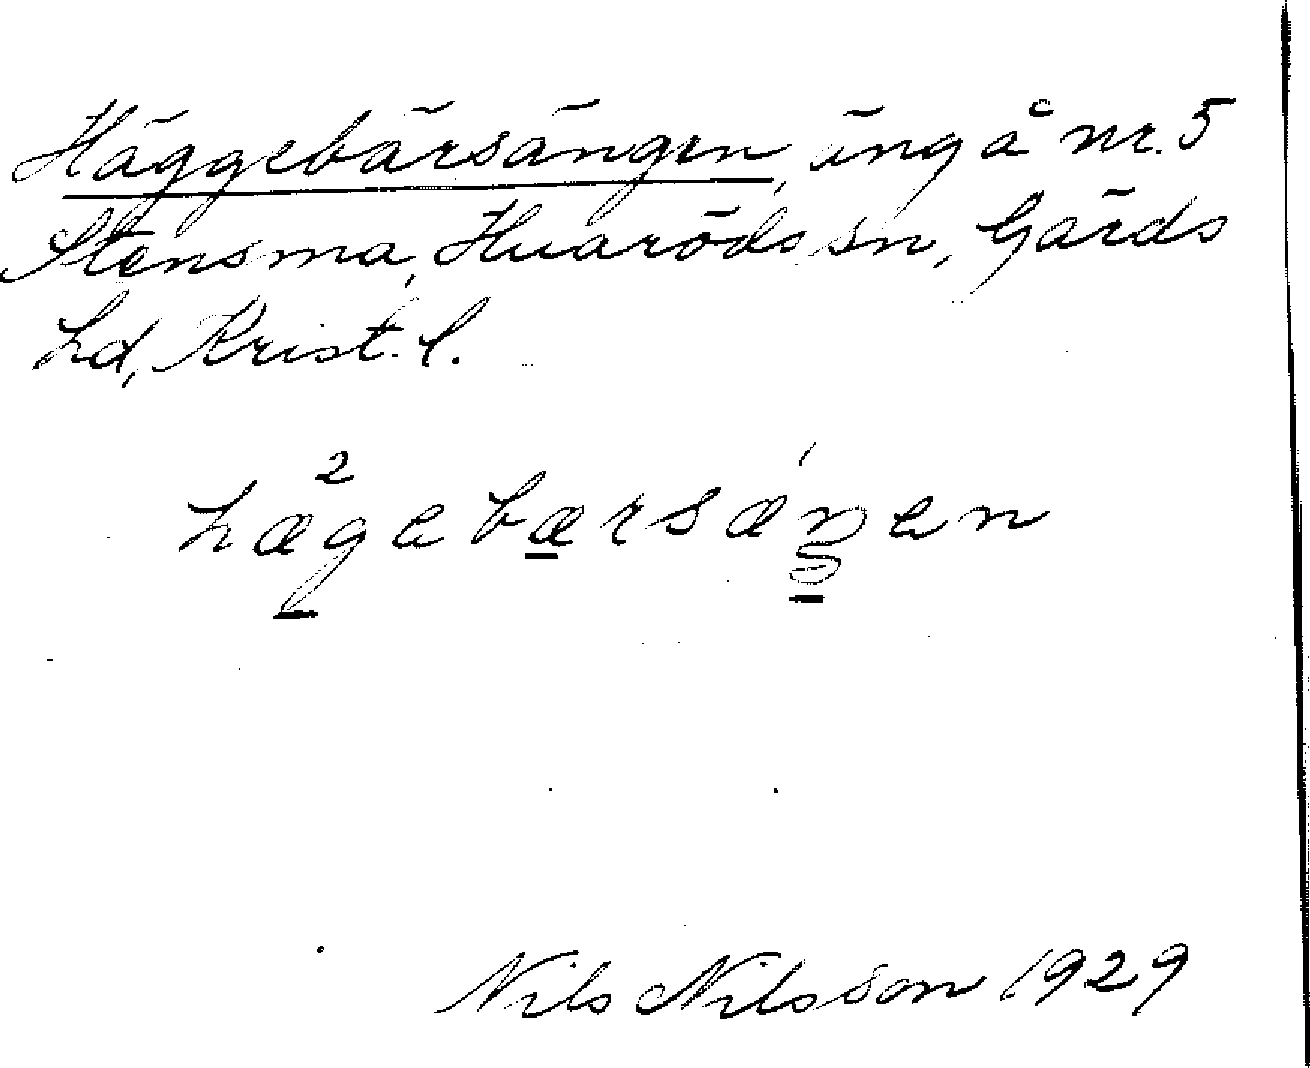 Häggebärsängen, äng å nr. 5
Stensma, Huaröds sn, Gärds
hd, Krist. l.
hæ²gebærsæ´ŋen
Nils Nilsson 1929